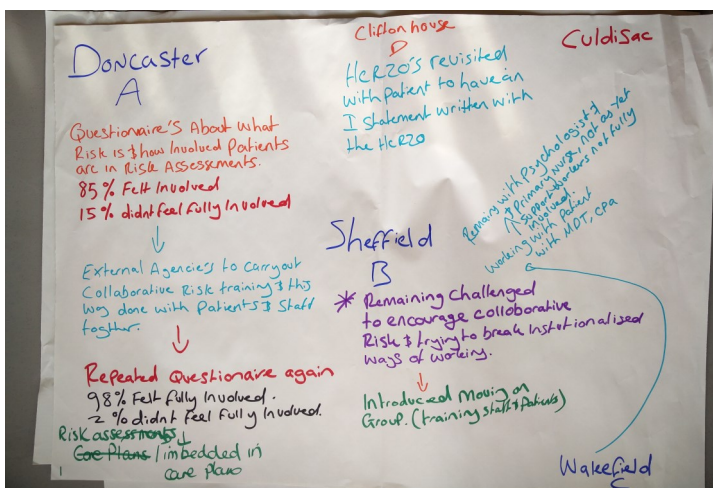 Doncaster
A
Questionaire's About what
Risk is & how Involved Patients
are in Risk Assessments.
85% Felt Involved
15% didnt feel fully Involved
External Agencies to carryout
Collaborative Risk training & this
was done with Patients & Staff
togther.
Repeated Questionaire again
98% Felt fully Involved.
2% didnt feel fully Involved.
Risk assessments
Care Plans / imbedded in
care plans
1
Clifton house
D
HCR20's revisited
with patient to have an
I statement written with
the HCR20
Culdisac
Remains with Psychologist &
& Primary Nurse, not as yet
Support workers not fully
involved.
Working with patient
with MDT, CPA
Sheffield
B
* Remaining Challenged
to encourage colloborative
Risk & trying to break Instutionalised
ways of working.
Introduced Moving on
Group. (training staff & patients)
Wakefield
C